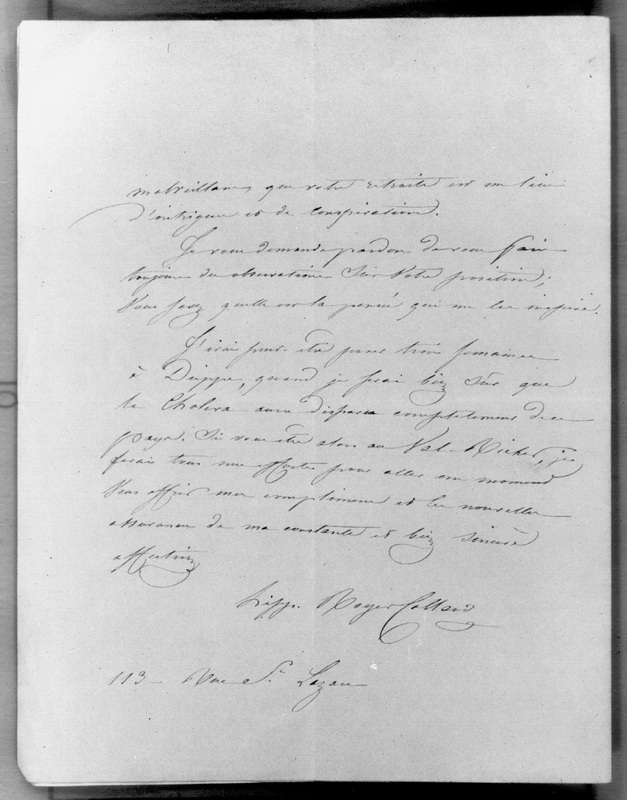 malveillans, que votre retraite est un lieu
d'intrigue et de conspiration.
Je vous demande pardon de vous faire
toujours des observations sur votre position;
vous savez quelle est la pensée qui me les inspire.
J'irai peut-être passer trois semaines
à Dieppe, quand je serai bien sûr que
le Choléra aura disparu complètement de ce
pays. Si vous êtes alors au Val-Richer, je
ferais tous mes efforts pour aller un moment
vous offrir mes complimens et les nouvelles
assurances de ma constante et bien sincère
affection
Hipp. Royer Collard
113 Rue St Lazare